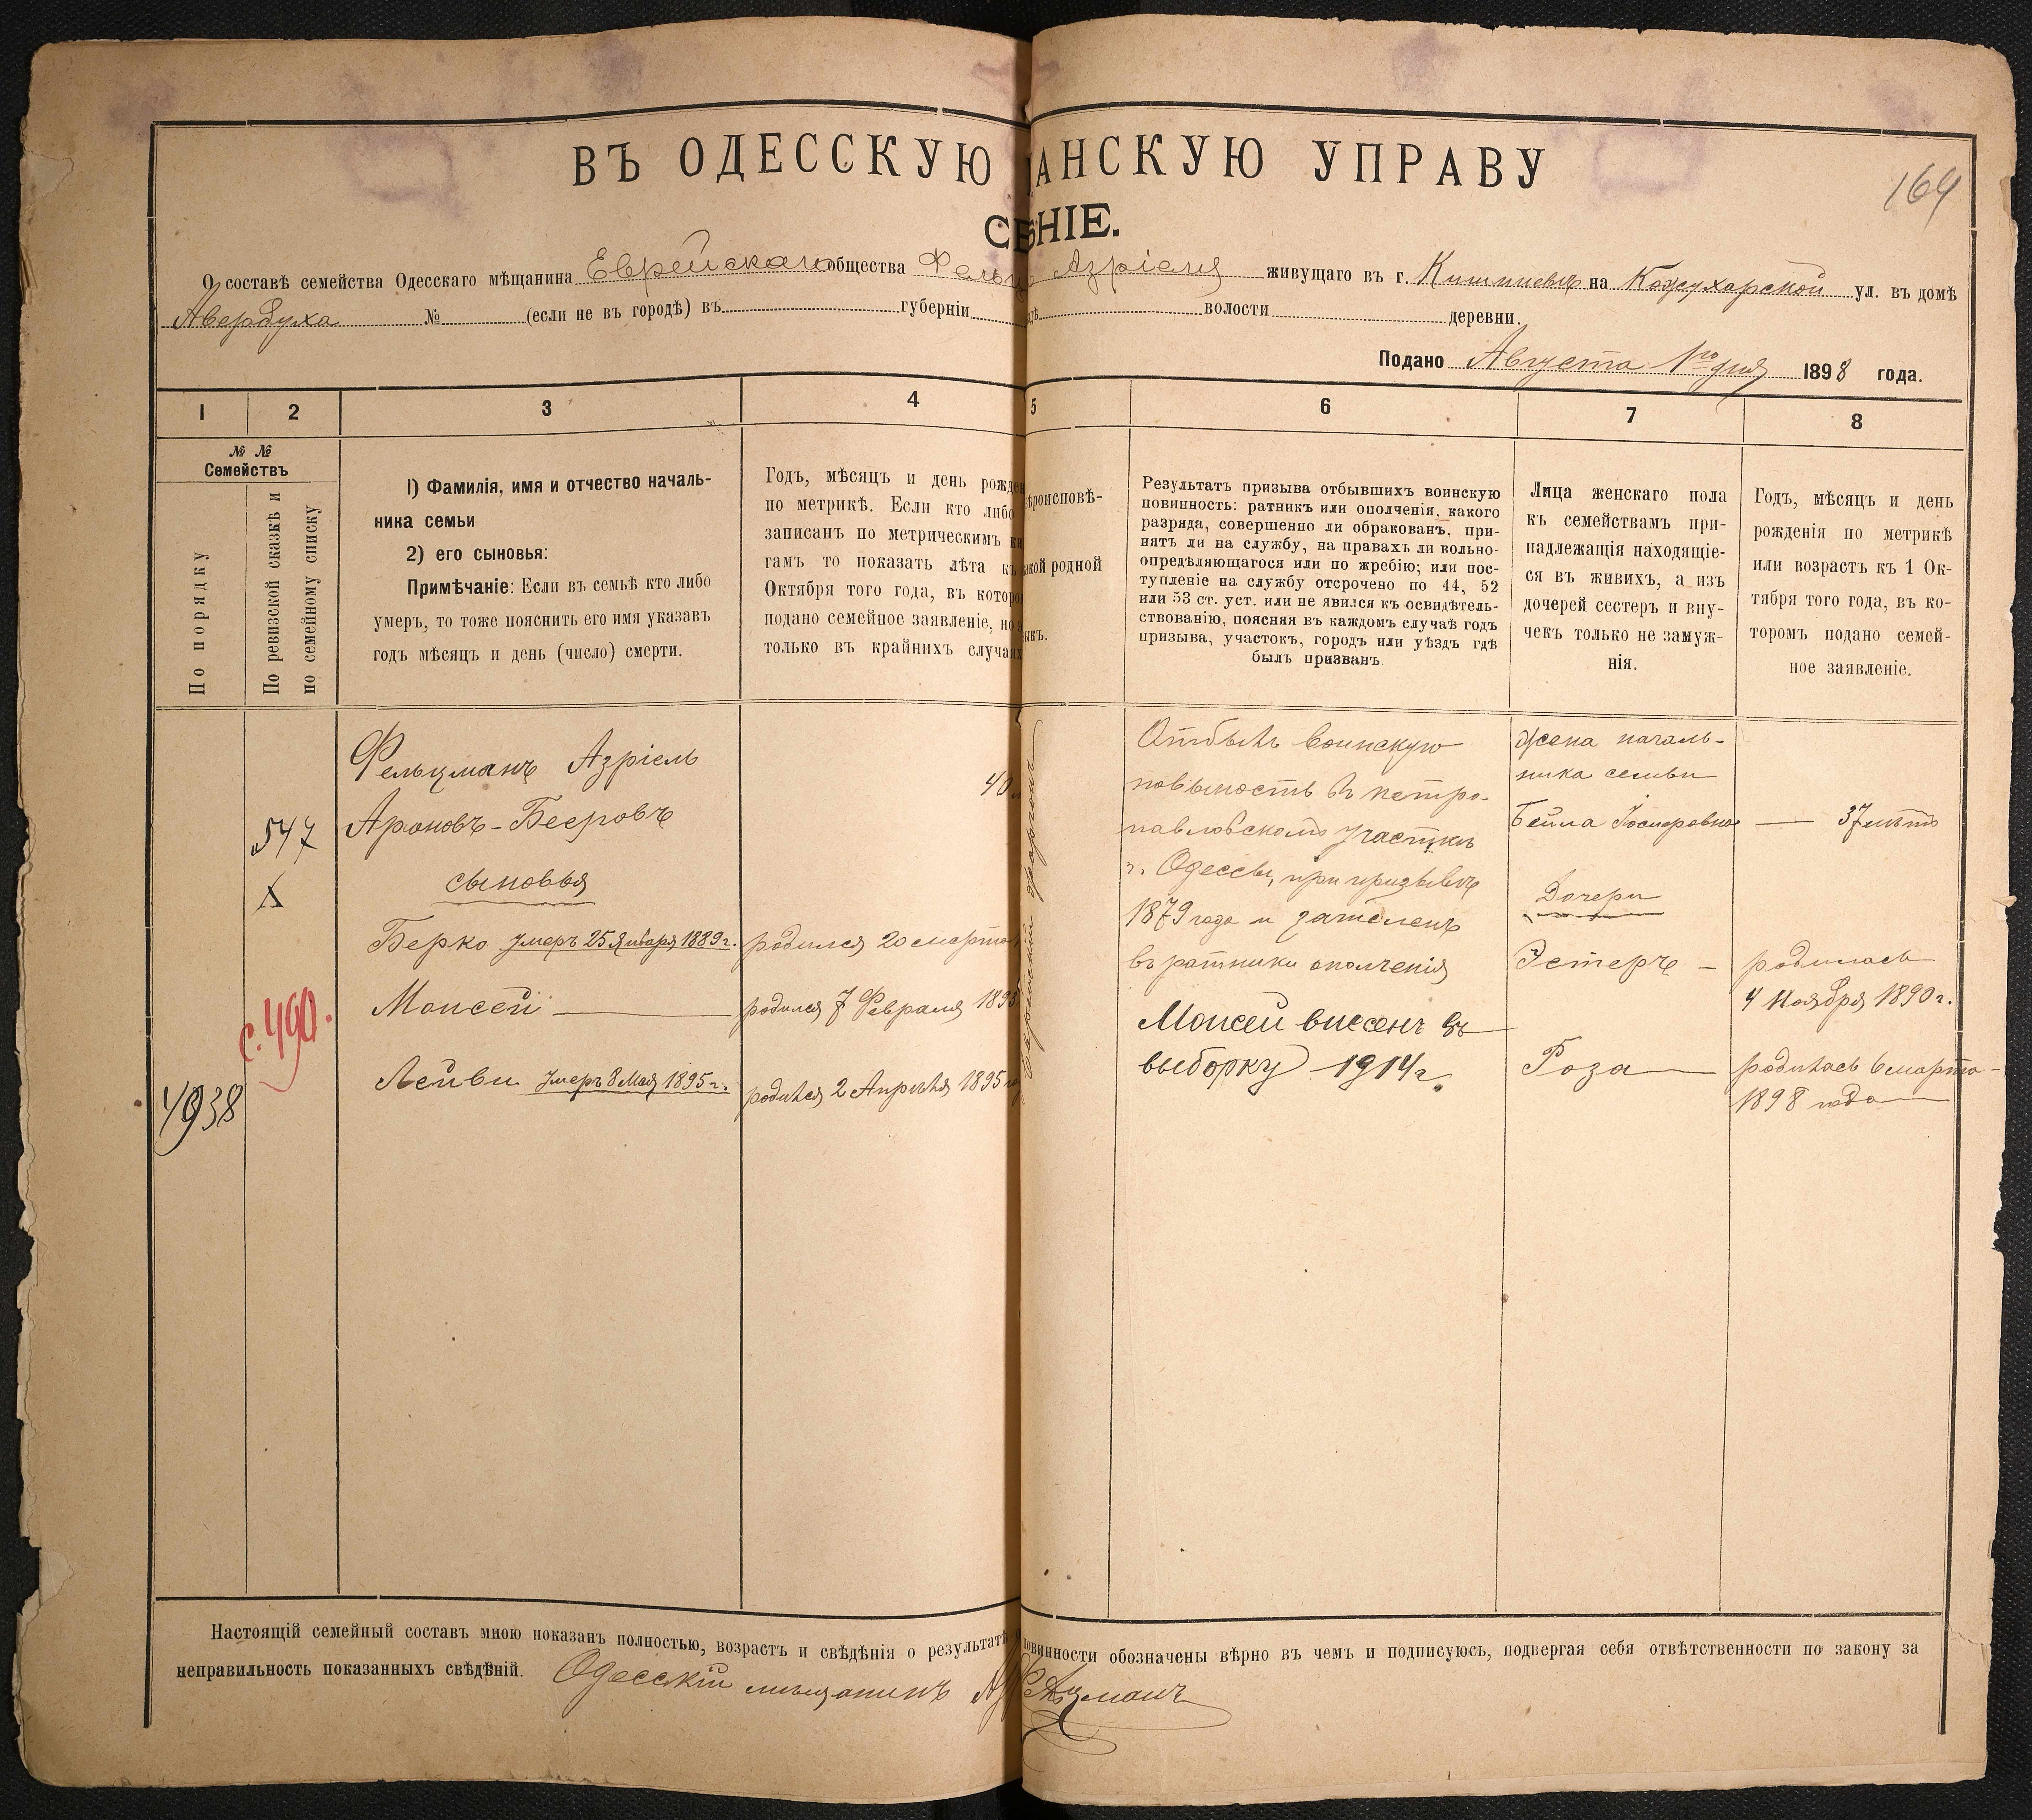 ВЪ ОДЕССКУЮ ЩАНСКУЮ УПРАВУ
164
СЕНІЕ.
О составѣ семейства Одесскаго мѣщанина Еврейскаго общества Азріеля живущаго въ г. Кишиневѣ на Кожухарской ул. въ домѣ
Авербуха № (если не въ городѣ) въ губерніи волости деревни.
Подано Августа 1го дня 1898 года.
1 2 3 4 5 6 7 8
№ №
Семействъ
По порядку
По ревизской сказкѣ и
по семейному списку
1) Фамилія, имя и отчество началь-
ника семьи
2) его сыновья:
Примѣчаніе: Если въ семьѣ кто либо
умеръ, то тоже пояснить его имя указавъ
годъ мѣсяцъ и день (число) смерти.
Годъ, мѣсяцъ и день рожден
по метрикѣ. Если кто либо
записанъ по метрическимъ кн
гамъ то показать лѣта къ
Октября того года, въ которо
подано семейное заявленіе, но
только въ крайнихъ случаях
вѣроисповѣ-
акой родной
ыкъ.
Результатъ призыва отбывшихъ воинскую
повинность: ратникъ или ополченія, какого
разряда, совершенно ли обракованъ, при-
нятъ ли на службу, на правахъ ли вольно-
опредѣляющагося или по жребію; или пос-
тупленіе на службу отсрочено по 44, 52
или 53 ст. уст. или не явился къ освидѣтель-
ствованію, поясняя въ каждомъ случаѣ годъ
призыва, участокъ, городъ или уѣздъ гдѣ
былъ призванъ.
Лица женскаго пола
къ семействамъ при-
надлежащія находящіе-
ся въ живихъ, а изъ
дочерей сестеръ и вну-
чекъ только не замуж-
нія.
Годъ, мѣсяцъ и день
рожденія по метрикѣ
или возрастъ къ 1 Ок-
тября того года, въ ко-
торомъ подано семей-
ное заявленіе.
4938
547
X
с. 490.
Фельцманъ Азріель
Ароновъ-Бееровъ
сыновья
Берко умеръ 25 Января 1889 г.
Моисей
Лейви умеръ 8 Мая 1895 г.
40
родился 20 марта
родился 7 Февраля 1893
родился 2 Апрѣля 1895
Еврейскій
Отбылъ воинскую
повинность въ петро-
павловскомъ участкѣ
г. Одессы, при призывѣ
1879 года и зачисленъ
въ ратники ополченія
Моисей внесенъ въ
выборку 1914 г.
Жена началь-
ника семьи
Бейла Іосифовна
Дочери
Эстеръ
Роза
37 лѣтъ
родилась
4 Ноября 1890 г.
родилась 6 марта
1898 года
Настоящій семейный составъ мною показанъ полностью, возрастъ и свѣдѣнія о результатѣ повинности обозначены вѣрно въ чемъ и подписуюсь, подвергая себя отвѣтственности по закону за
неправильность показанныхъ свѣдѣній. Одесскій мѣщанинъ